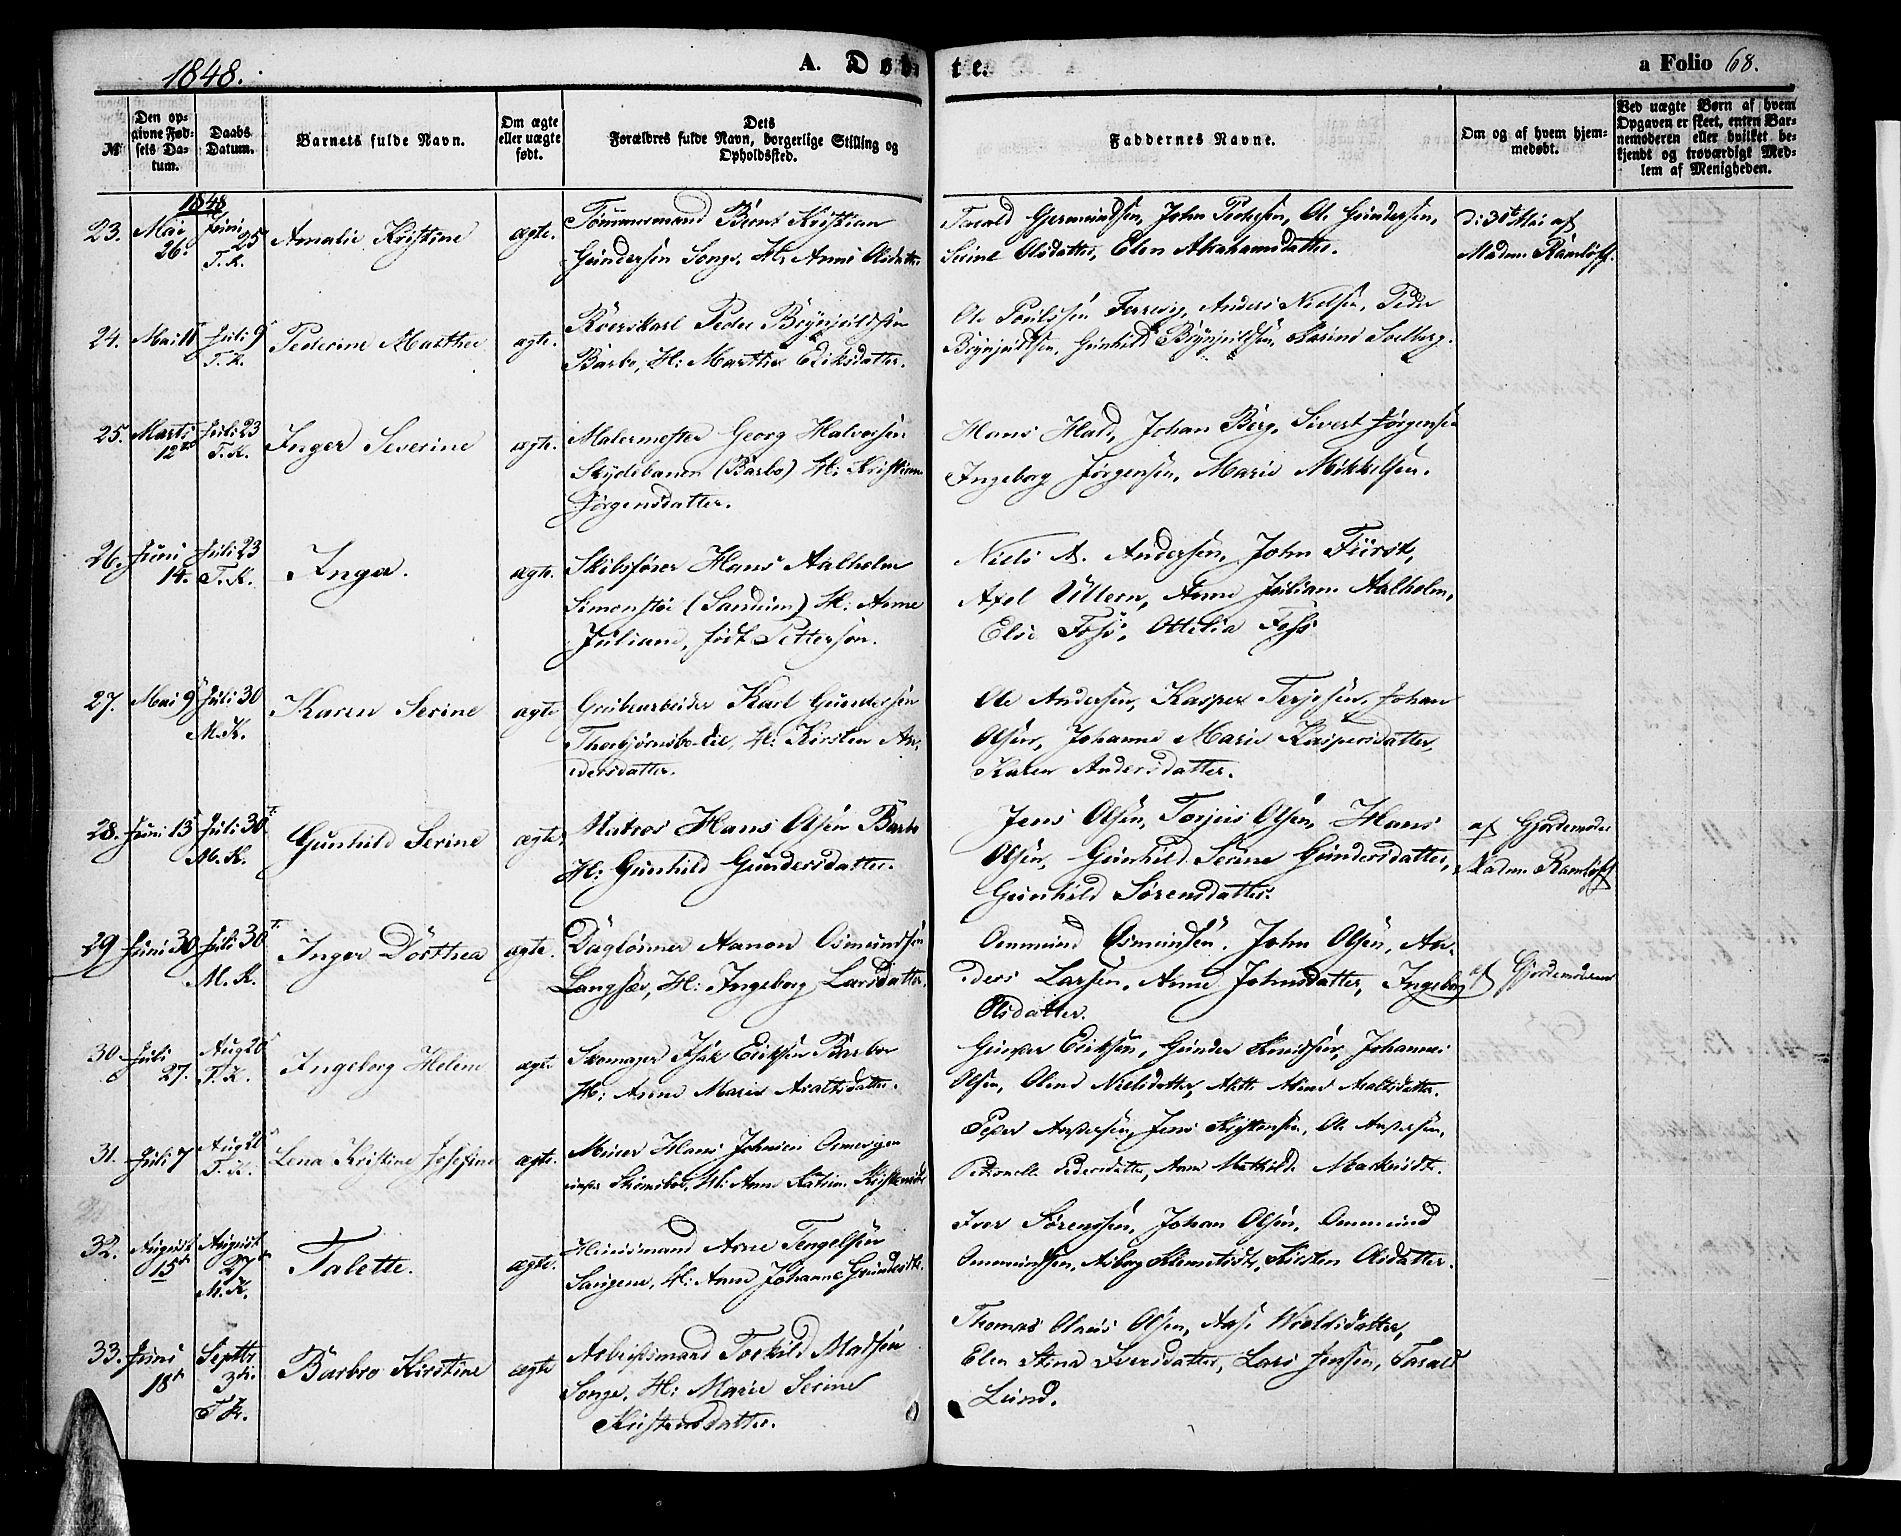 1848.
A. Døb
te.
a Folio 68.
№
Den op-
givne Fød-
sels Da-
tum.
Daabs
Datum.
Barnets fulde Navn.
Om ægte
eller uægte
født.
Dets
Forældres fulde Navn, borgerlige Stilling og
Opholdssted.
Faddernes Navne.
Om og af hvem hjem-
medøbt.
Ved uægte Børn af hvem
Opgaven er skeet, enten Bar-
nemoderen eller hvilket be-
kjendt og troværdigt Med-
lem af Menigheden.
1848
23. Mai 26. Juni 25 T.K. Amalie Kristine ægte.
Tømmermand Bernt Kristian
Gundersen Songe, H: Anne Olsdatter
Tarald Gjermundsen, John Pedersen, Ole Gundersen,
Serine Olsdatter, Elen Abrahamsdatter.
d: 31t Mai af
Madm Ramløff.
24. Mai 11 Juli 9 T.K. Pederine Marthe ægte.
Peder Brynjuldsen
Barbo, H: Marthe Eriksdatter.
Ole Poulssen Anders Nielsen, Peder
Brynjuldsen, Gunhild Brynjuldsen, Karine Solberg.
25. Marts 12te Juli 23 T.K. Inger Severine ægte.
Malermester Georg Halvorsen
Skydebanen (Barbo) H: Kristiane
Jørgensdatter.
Hans Hald, Johan Berg, Sivert Jørgensen
Ingeborg Jørgensen, Marie Mikkelsen.
26. Juni 14. Juli 23 T.K. Inga. ægte.
Skibsfører Hans Aalholm
Simonstø (Sandum) H: Anne
Juliane, født Pettersen.
Niels A. Andersen, John Fürst,
Axel Ullern, Anne Juliane Aalholm,
Else Foss, Ottilia Foss
27. Mai 9 Juli 30 M.K. Karen Serine ægte
Grubearbeider Karl Gundersen
H: Kirsten An-
dersdatter.
Ole Andersen, Kasper Terjesen, Johan
Olsen, Johanne Marie Kaspersdatter,
Karen Andersdatter.
28. Juni 13 Juli 30t M.K. Gunhild Serine ægte
Matros Hans Olsen Barbo
H: Gunhild Gundersdatter.
Jens Olsen, Torjus Olsen, Hans
Olsen, Gunhild Serine Gundersdatter,
Gunhild Sørensdatter.
af Gjordemoder
Madm Ramløff
29 Juni 30 Juli 30t M.K. Inger Dorthea ægte.
Daglønner Aanon Osmundsen
Langsæe, H: Ingeborg Larsdatter.
Ommund Osmunsen, John Olsen, An-
ders Larsen, Anne Johnsdatter, Ingeborg
Olsdatter.
af Gjordemoderen
30 Juli 27. Aug 20 T.K. Ingeborg Helene ægte
Skomager Isak Eriksen Barbo
H: Anne Marie Aroltsdatter.
Eriksen, Gunder Knudsen, Johannes
Olsen, Oline Nielsdatter,
31. Juli 7 Aug 20 T.K. Lena Kristine Josefine ægte.
Murer Hans Johnsen
H: Anne Katrine
Peder Andersen, Jens Kristensen, Ole Andersen,
Petronelle Pedersdatter, Anne Mathilde
32. August 15de August 27 M.K. Talette. ægte.
Huusmand Arne Tengelsen
H: Anne Johanne Gundersdt.
Iver Sørensen, Johan Olsen, Ommund
Ommundsen, Asborg Klemetsdt, Kirsten Olsdatter.
33. Juni 18de Septbr 3di T.K. Barbro Kirstine ægte
Arbeidsmand Torkild Madsen
Songe, H: Marie Serine
Kristensdatter.
Thomas Olaus Olsen, Aase
Elen Stina Iversdatter, Lars Jensen, Tarald
Lund.